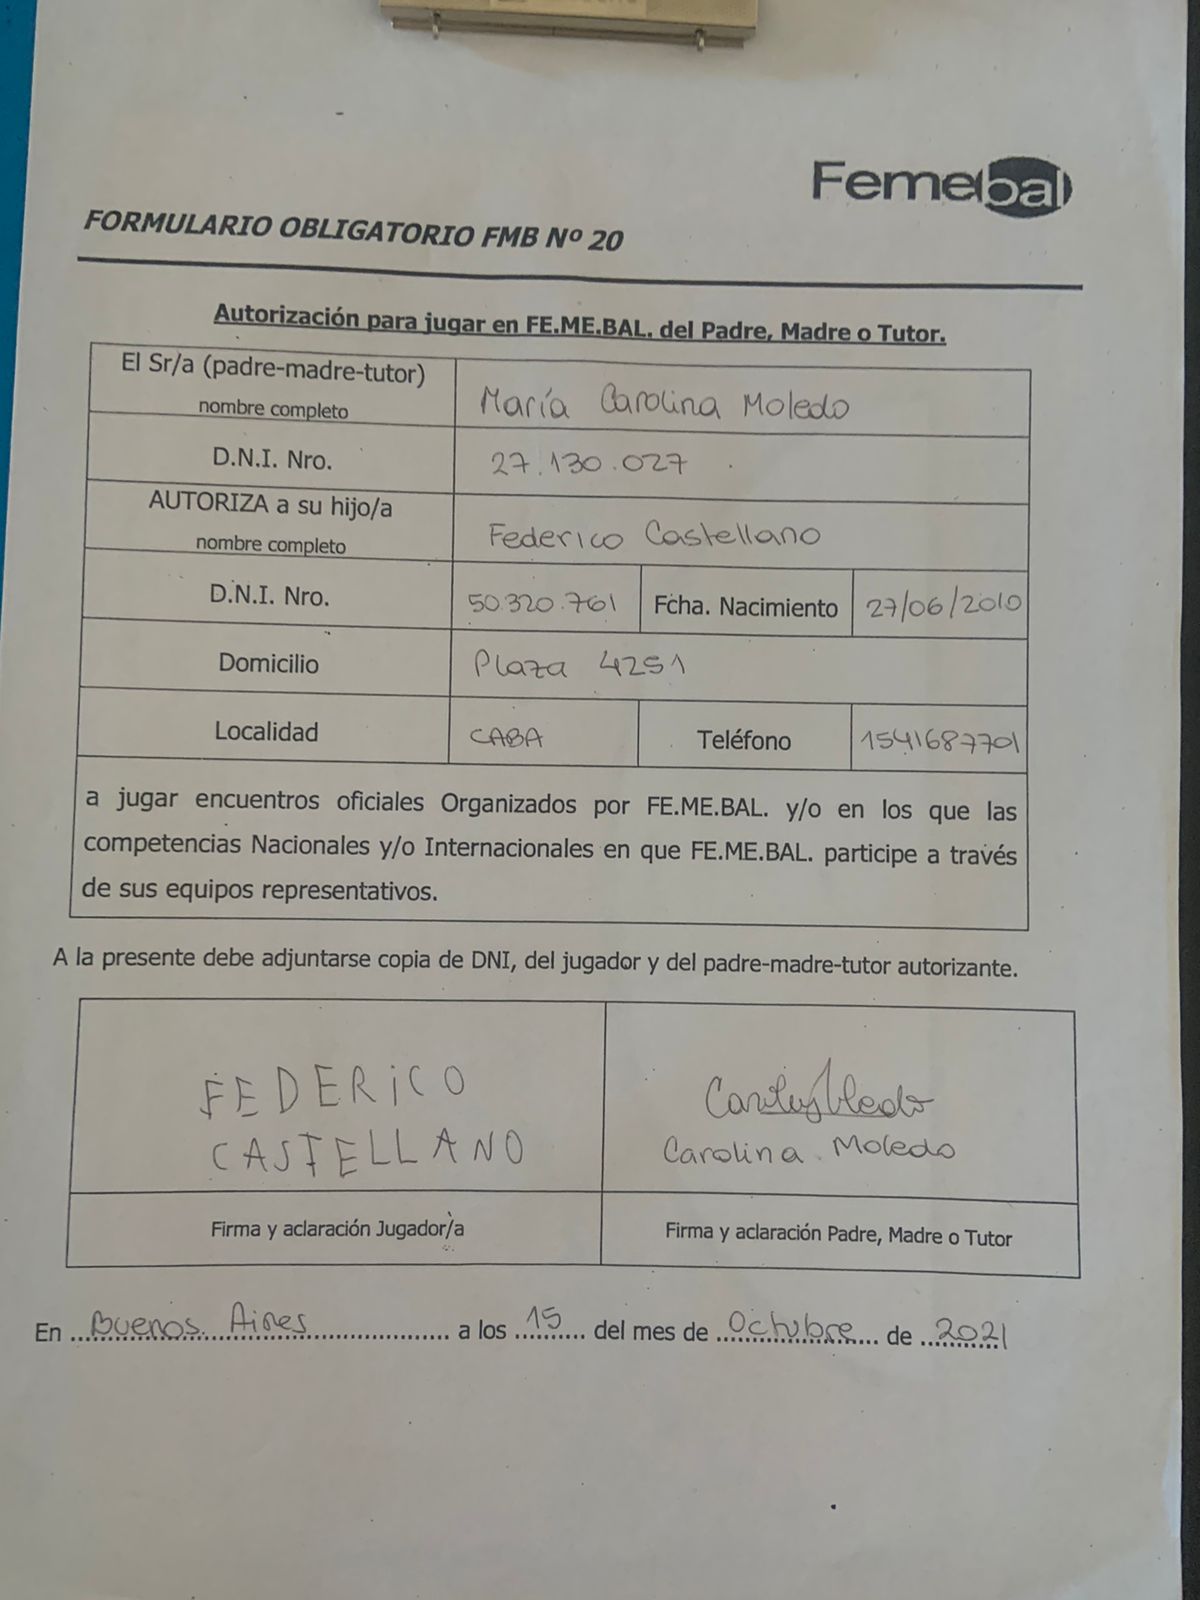 Femebal
FORMULARIO OBLIGATORIO FMB Nº 20
Autorización para jugar en FE.ME.BAL. del Padre, Madre o Tutor.
El Sr/a (padre-madre-tutor)
nombre completo
María Carolina Moledo
D.N.I. Nro.
27.130.027
AUTORIZA a su hijo/a
nombre completo
Federico Castellano
D.N.I. Nro.
50.320.761
Fcha. Nacimiento
27/06/2010
Domicilio
Plaza 4251
Localidad
CABA
Teléfono
1541687701
a jugar encuentros oficiales Organizados por FE.ME.BAL. y/o en los que las
competencias Nacionales y/o Internacionales en que FE.ME.BAL. participe a través
de sus equipos representativos.
A la presente debe adjuntarse copia de DNI, del jugador y del padre-madre-tutor autorizante.
FEDERICO
CASTELLANO
Carolina Moledo
Firma y aclaración Jugador/a
Firma y aclaración Padre, Madre o Tutor
En Buenos Aires a los 15 del mes de Octubre de 2021